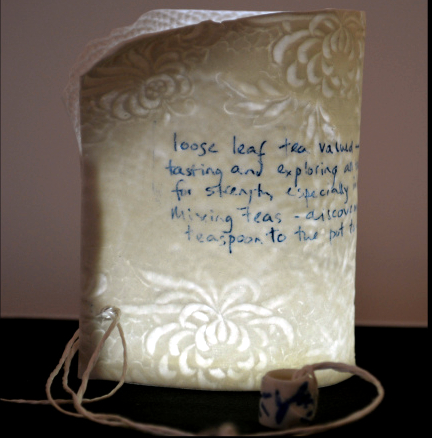 loose leaf tea valued
tasting and exploring
for strength, especially
Mixing teas - discover
teaspoon to the pot